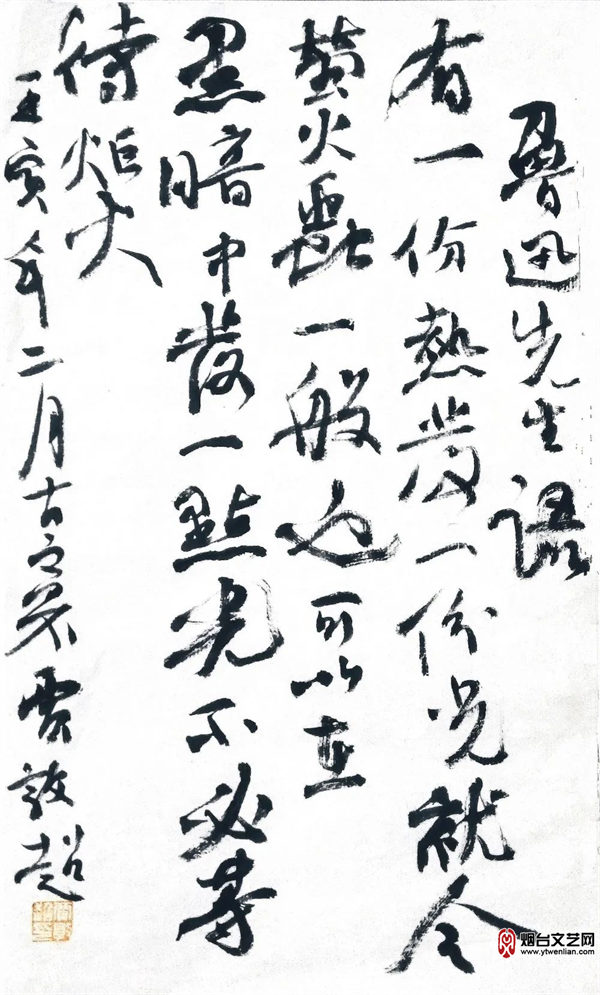 魯迅先生語
有一份熱發一份光就令
螢火蟲一般也可以在
黑暗中發一點光不必等
待炬火
壬寅年二月古
烟台文艺网
www.ytwenlian.com